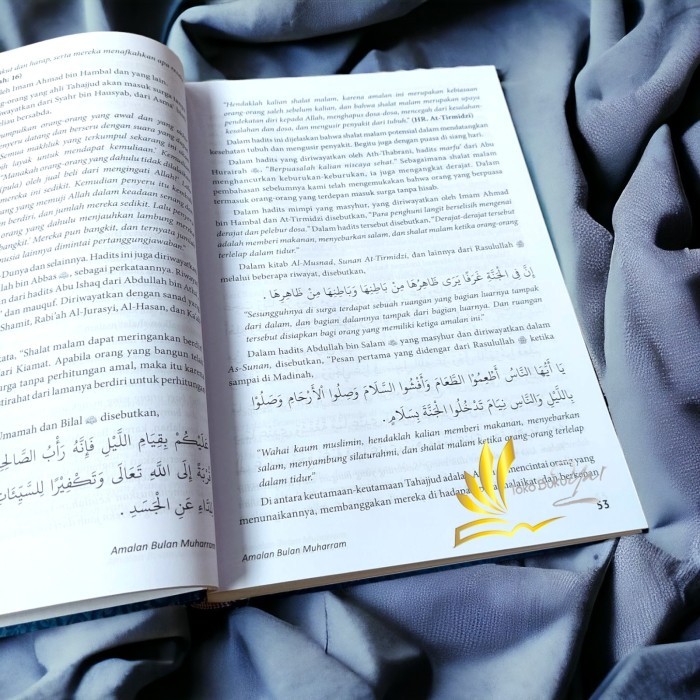 kut dan harap, serta mereka menafkahkan apa
ah: 16)
oleh Imam Ahmad bin Hambal dan yang lain
orang-orang yang ahli Tahajjud akan masuk surga
riwayatkan dari Syahr bin Hausyab, dari Asma
bersabda,
mengumpulkan orang-orang yang awal dan yang
penyeru datang dan berseru dengan suara yang
'Semua makhluk yang terkumpul sekarang ini
layak untuk mendapat kemuliaan'. Kemudian
'Manakah orang-orang yang dahulu tidak dilalaikan
(pula) oleh jual beli dari mengingati Allah?'
mereka ini sedikit. Kemudian penyeru itu kembali
yang memuji Allah dalam keadaan senang
berdiri, dan jumlah mereka sedikit. Lalu penyeru
orang yang dahulu menjauhkan lambung mereka
bangkit.' Mereka pun bangkit, dan ternyata jumlah
manusia lainnya dimintai pertanggungjawaban."
Dunya dan selainnya. Hadits ini juga diriwayatkan
bin Abbas ﷺ, sebagai perkataannya. Riwayat
dari hadits Abu Ishaq dari Abdullah bin Atha
dan mauquf. Diriwayatkan dengan sanad yang
Shamit, Rabi'ah Al-Jurasyi, Al-Hasan, dan Ka'ab
ata, "Shalat malam dapat meringankan berdiri
dari Kiamat. Apabila orang yang bangun
surga tanpa perhitungan amal, maka itu karena
istirahat dari lamanya berdiri untuk perhitungan
Umamah dan Bilal disebutkan,
عَلَيْكُمْ بِقِيَامِ اللَّيْلِ فَإِنَّهُ دَأْبُ الصَّالِحِ
قُرْبَةٌ إِلَى اللَّهِ تَعَالَى وَتَكْفِيْرًا لِلسَّيِّئَاتِ
عَنِ الْجَسَدِ .
Amalan Bulan Muharram
"Hendaklah kalian shalat malam, karena amalan ini merupakan kebiasaan
orang-orang saleh sebelum kalian, dan bahwa shalat malam merupakan upaya
pendekatan diri kepada Allah, menghapus dosa-dosa, mencegah dari kesalahan-
kesalahan dan dosa, dan mengusir penyakit dari tubuh." (HR. At-Tirmidzi)
Dalam hadits ini dijelaskan bahwa shalat malam potensial dalam mendatangkan
kesehatan tubuh dan mengusir penyakit. Begitu juga dengan puasa di siang hari.
Dalam hadits yang diriwayatkan oleh Ath-Thabrani, hadits marfu' dari Abu
Hurairah, "Berpuasalah kalian niscaya sehat." Sebagaimana shalat malam
menghancurkan keburukan-keburukan, ia juga mengangkat derajat. Dalam
pembahasan sebelumnya kami telah mengemukakan bahwa orang yang berpuasa
termasuk orang-orang yang terdepan masuk surga tanpa hisab.
Dalam hadits mimpi yang masyhur, yang diriwayatkan oleh Imam Ahmad
bin Hambal dan At-Tirmidzi disebutkan, "Para penghuni langit berselisih mengenai
derajat dan pelebur dosa." Dalam hadits tersebut disebutkan, "Derajat-derajat tersebut
adalah memberi makanan, menyebarkan salam, dan shalat malam ketika orang-orang
terlelap dalam tidur."
Dalam kitab Al-Musnad, Sunan At-Tirmidzi, dan lainnya dari Rasulullah ﷺ
melalui beberapa riwayat, disebutkan,
إِنَّ فِي الْجَنَّةِ غُرَفًا يُرَى ظَاهِرُهَا مِنْ بَاطِنِهَا وَبَاطِنُهَا مِنْ ظَاهِرِهَا .
"Sesungguhnya di surga terdapat sebuah ruangan yang bagian luarnya tampak
dari dalam, dan bagian dalamnya tampak dari bagian luar. Dan ruangan
tersebut disiapkan bagi orang yang memiliki ketiga amalan ini."
Dalam hadits Abdullah bin Salam yang masyhur dan diriwayatkan dalam
As-Sunan, disebutkan, "Pesan pertama yang didengar dari Rasulullah ﷺ ketika
sampai di Madinah,
يَا أَيُّهَا النَّاسُ أَطْعِمُوْا الطَّعَامَ وَأَفْشُوا السَّلَامَ وَصِلُوا الْأَرْحَامَ وَصَلُّوْا
بِاللَّيْلِ وَالنَّاسُ نِيَامٌ تَدْخُلُوا الْجَنَّةَ بِسَلَامٍ .
"Wahai kaum muslimin, hendaklah kalian memberi makanan, menyebarkan
salam, menyambung silaturahmi, dan shalat malam ketika orang-orang terlelap
dalam tidur."
Di antara keutamaan-keutamaan Tahajjud adalah mencintai orang yang
menunaikannya, membanggakan mereka di hadapan malaikat, dan
53
Amalan Bulan Muharram